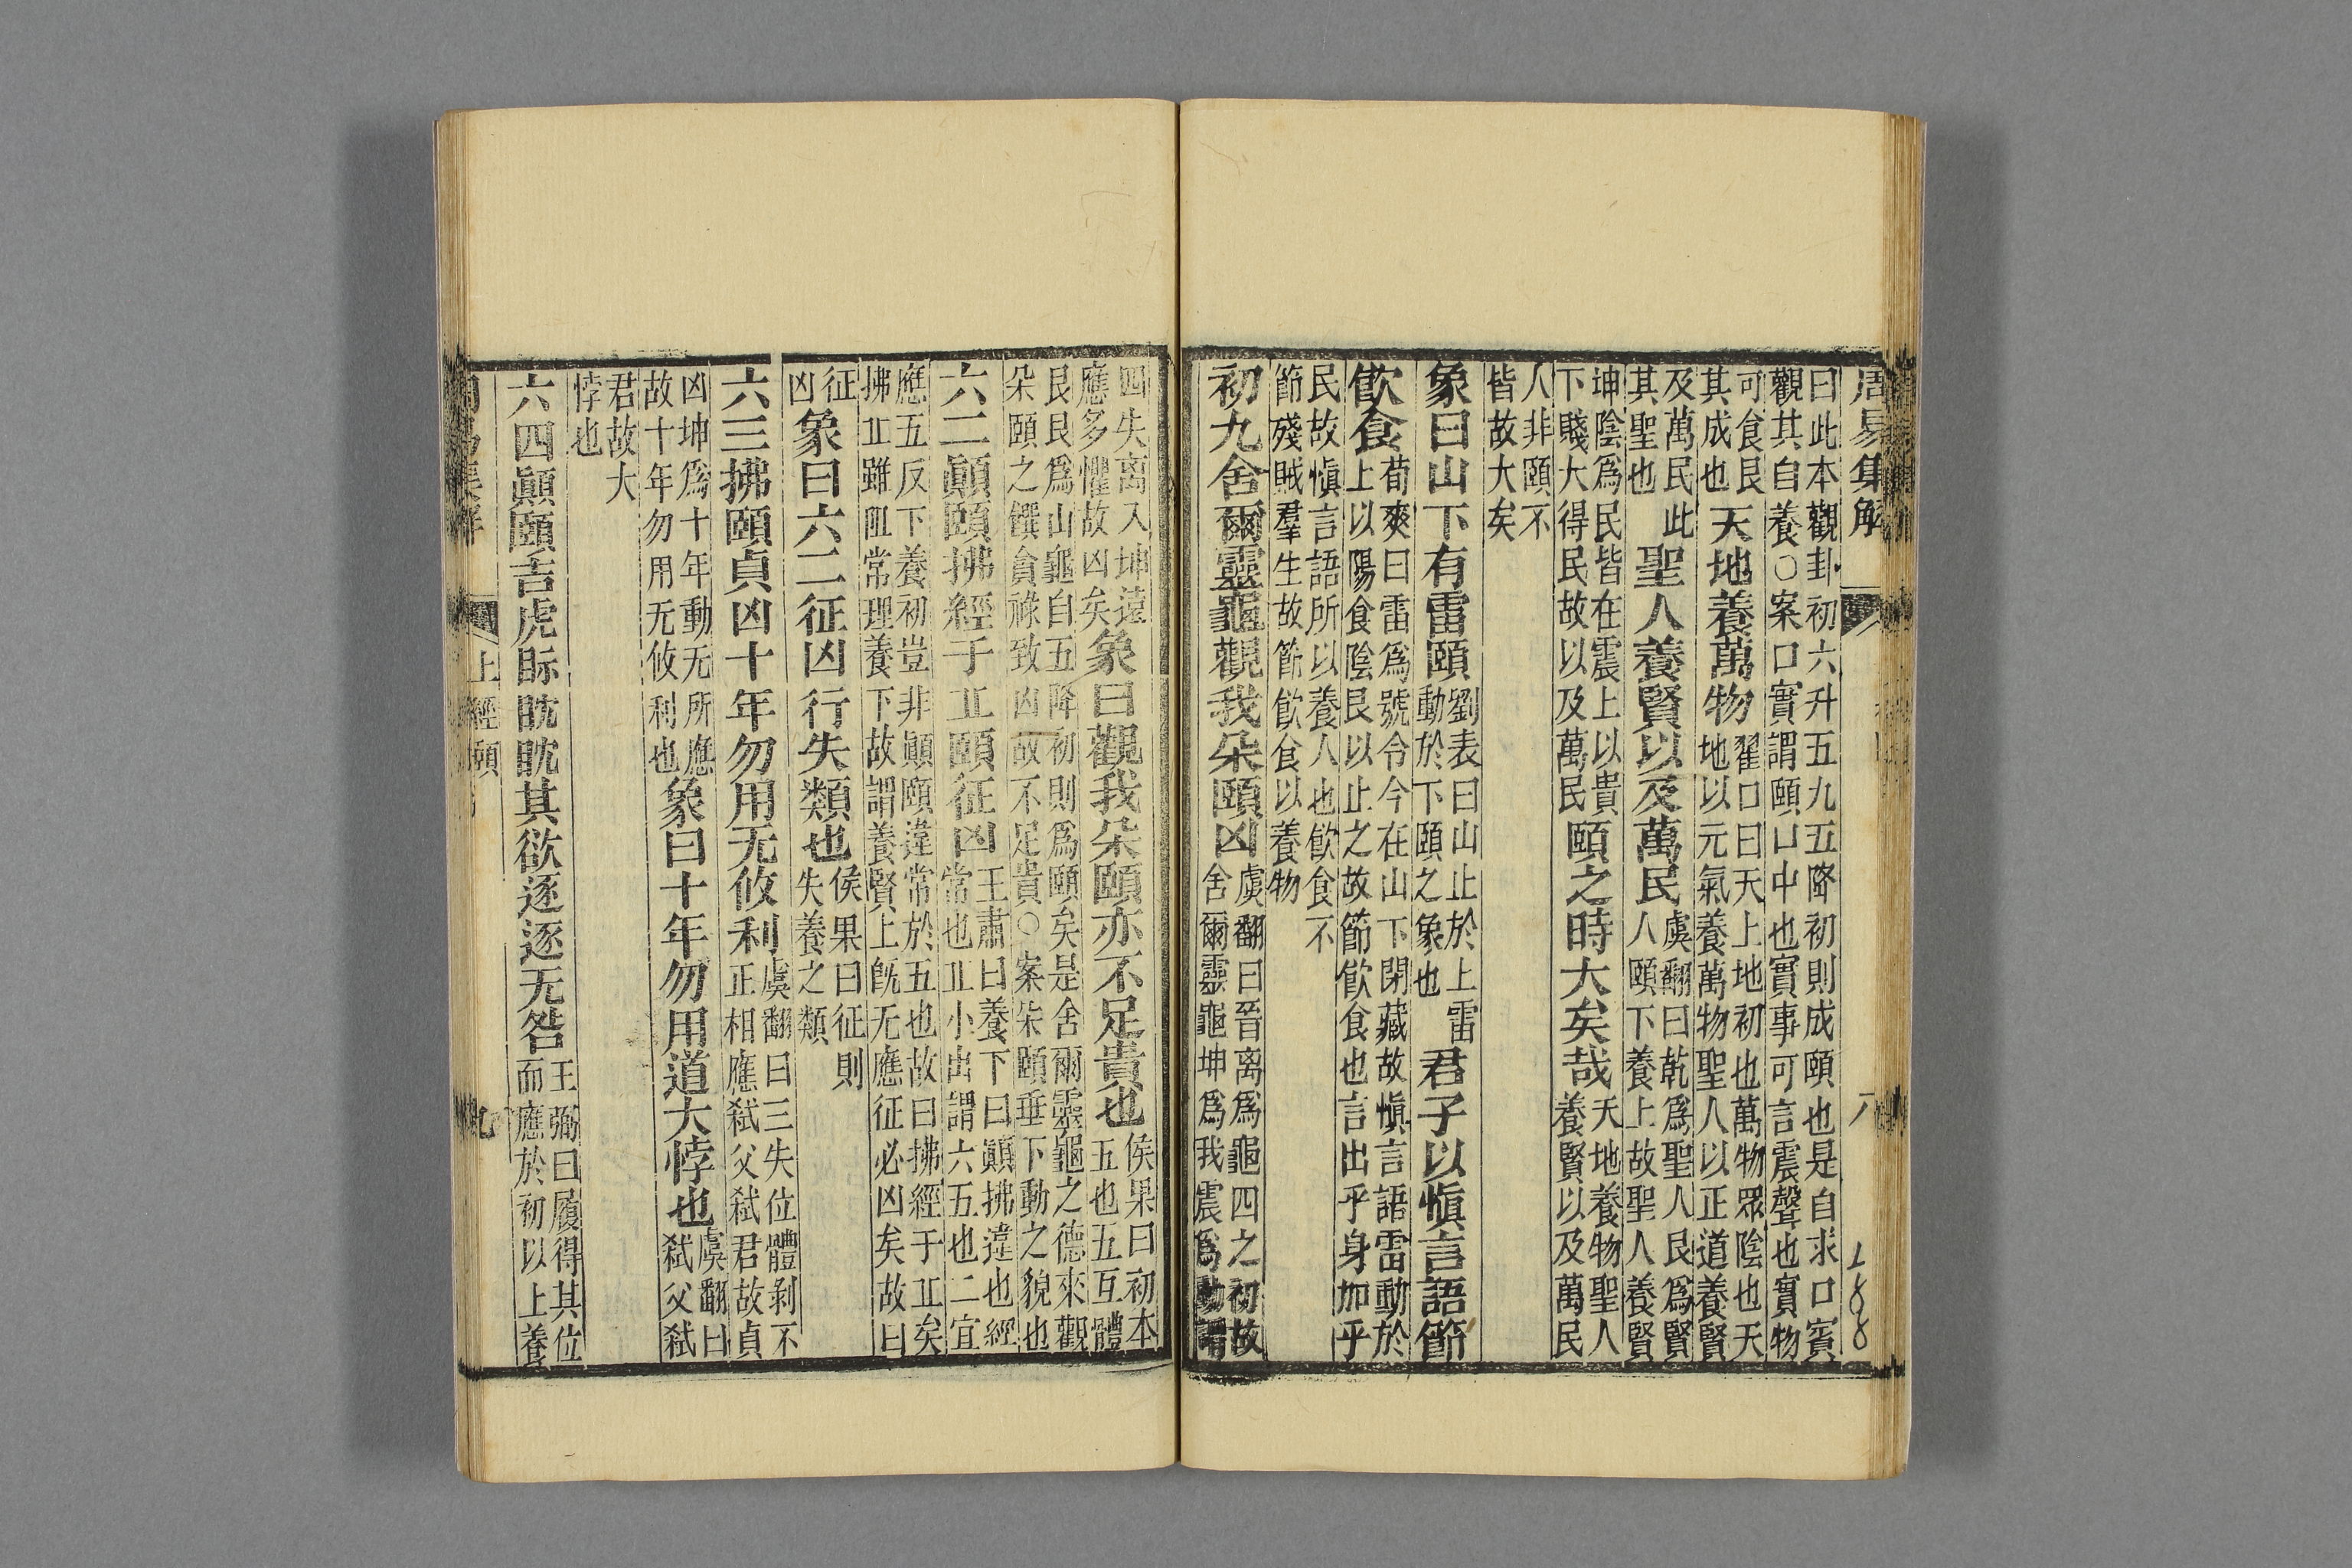 周易集解
曰此本觀卦初六升五九五降初則成頤也是自求口實
觀其自養○案口實謂頤口中也實事可言震聲也實物
可食艮
其成也天地養萬物翟口曰天上地初也萬物眾陰也天
地以元氣養萬物聖人以正道養賢
及萬民此
其聖也聖人養賢以及萬民虞翻曰乾爲聖人艮爲賢
人頤下養上故聖人養賢
坤陰爲民皆在震上以貴
下賤大得民故以及萬民頤之時大矣哉天地養物聖人
養賢以及萬民
人非頤不
皆故大矣
象曰山下有雷頤劉表曰山止於上雷
動於下頤之象也君子以愼言語節
飮食荀爽曰雷爲號令今在山下閉藏故愼言語雷動於
上以陽食陰艮以止之故節飮食也言出乎身加乎
民故愼言語所以養人也飮食不
節殘賊羣生故節飮食以養物
初九舍爾靈龜觀我朵頤凶虞翻曰晉离爲龜四之初故
舍爾靈龜坤爲我震爲動謂
四失离入坤遠
應多懼故凶矣象曰觀我朵頤亦不足貴也侯果曰初本
五也五互體
艮艮爲山龜自五降初則爲頤矣是舍爾靈龜之德來觀
朵頤之饌貪祿致凶故不足貴○案朵頤垂下動之貌也
六二顚頤拂經于丠頤征凶王肅曰養下曰顚拂違也經
常也丠小出謂六五也二宜
應五反下養初豈非顚頤違常於五也故曰拂經于丠矣
拂丠雖阻常理養下故謂養賢上旣无應征必凶矣故曰
征
凶象曰六二征凶行失類也侯果曰征則
失養之類
六三拂頤貞凶十年勿用无攸利虞翻曰三失位體剝不
正相應弒父弒君故貞
凶坤爲十年動无所應
故十年勿用无攸利也象曰十年勿用道大悖也虞翻曰
弒父弒
君故大
悖也
六四顚頤吉虎眎眈眈其欲逐逐无咎王弼曰履得其位
而應於初以上養
上經頤
九